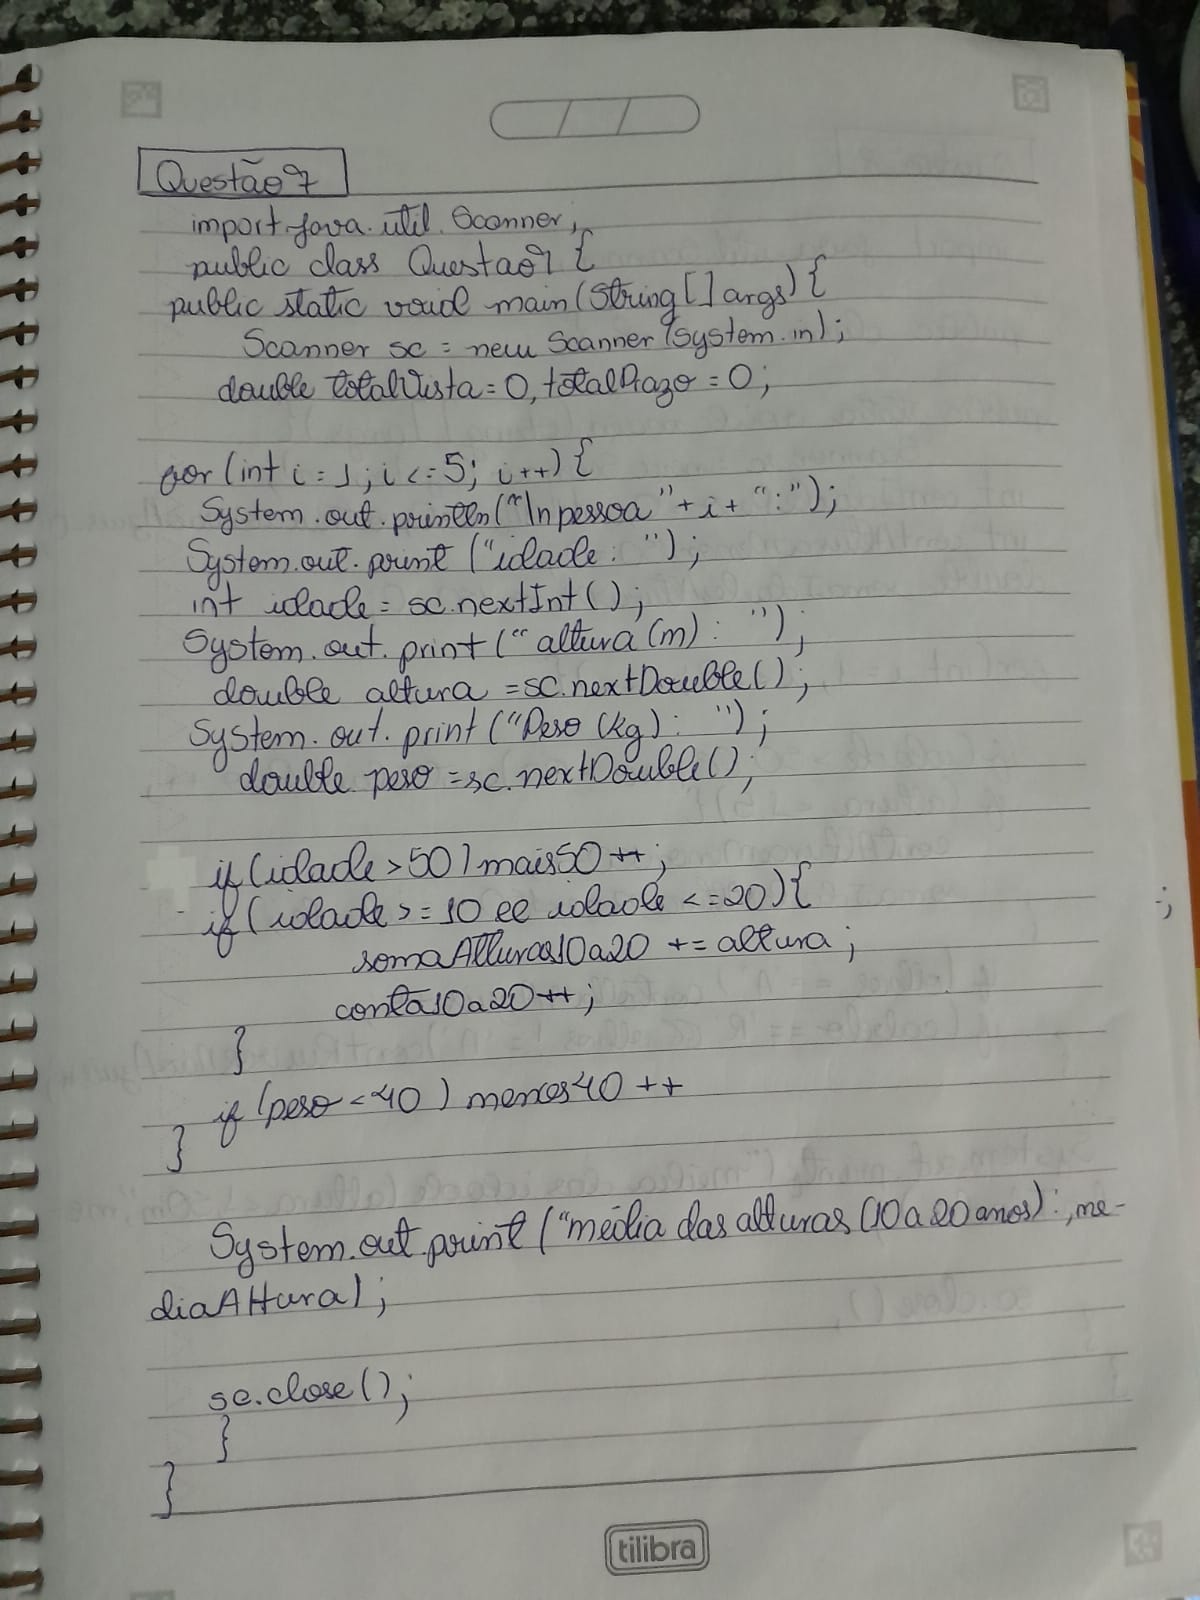 Questão 7
import java.util.Scanner;
public class Questao7 {
public static void main(String[] args){
Scanner sc = new Scanner(System.in);
double totalVista=0, totalPrazo=0;
for(int i=1; i<=5; i++){
System.out.println("\n pessoa "+i+":");
System.out.print("idade: ");
int idade=sc.nextInt();
System.out.print("altura(m): ");
double altura=sc.nextDouble();
System.out.print("Peso (kg): ");
double peso=sc.nextDouble();
if(idade>50) mais50++;
if(idade>=10 ee idade<=20){
somaAlturas10a20 += altura;
conta10a20++;
}
if (peso<40) menos40++
}
System.out.print("média das alturas(10 a 20 anos):, me-
diaAltura);
sc.close();
}
}
tilibra